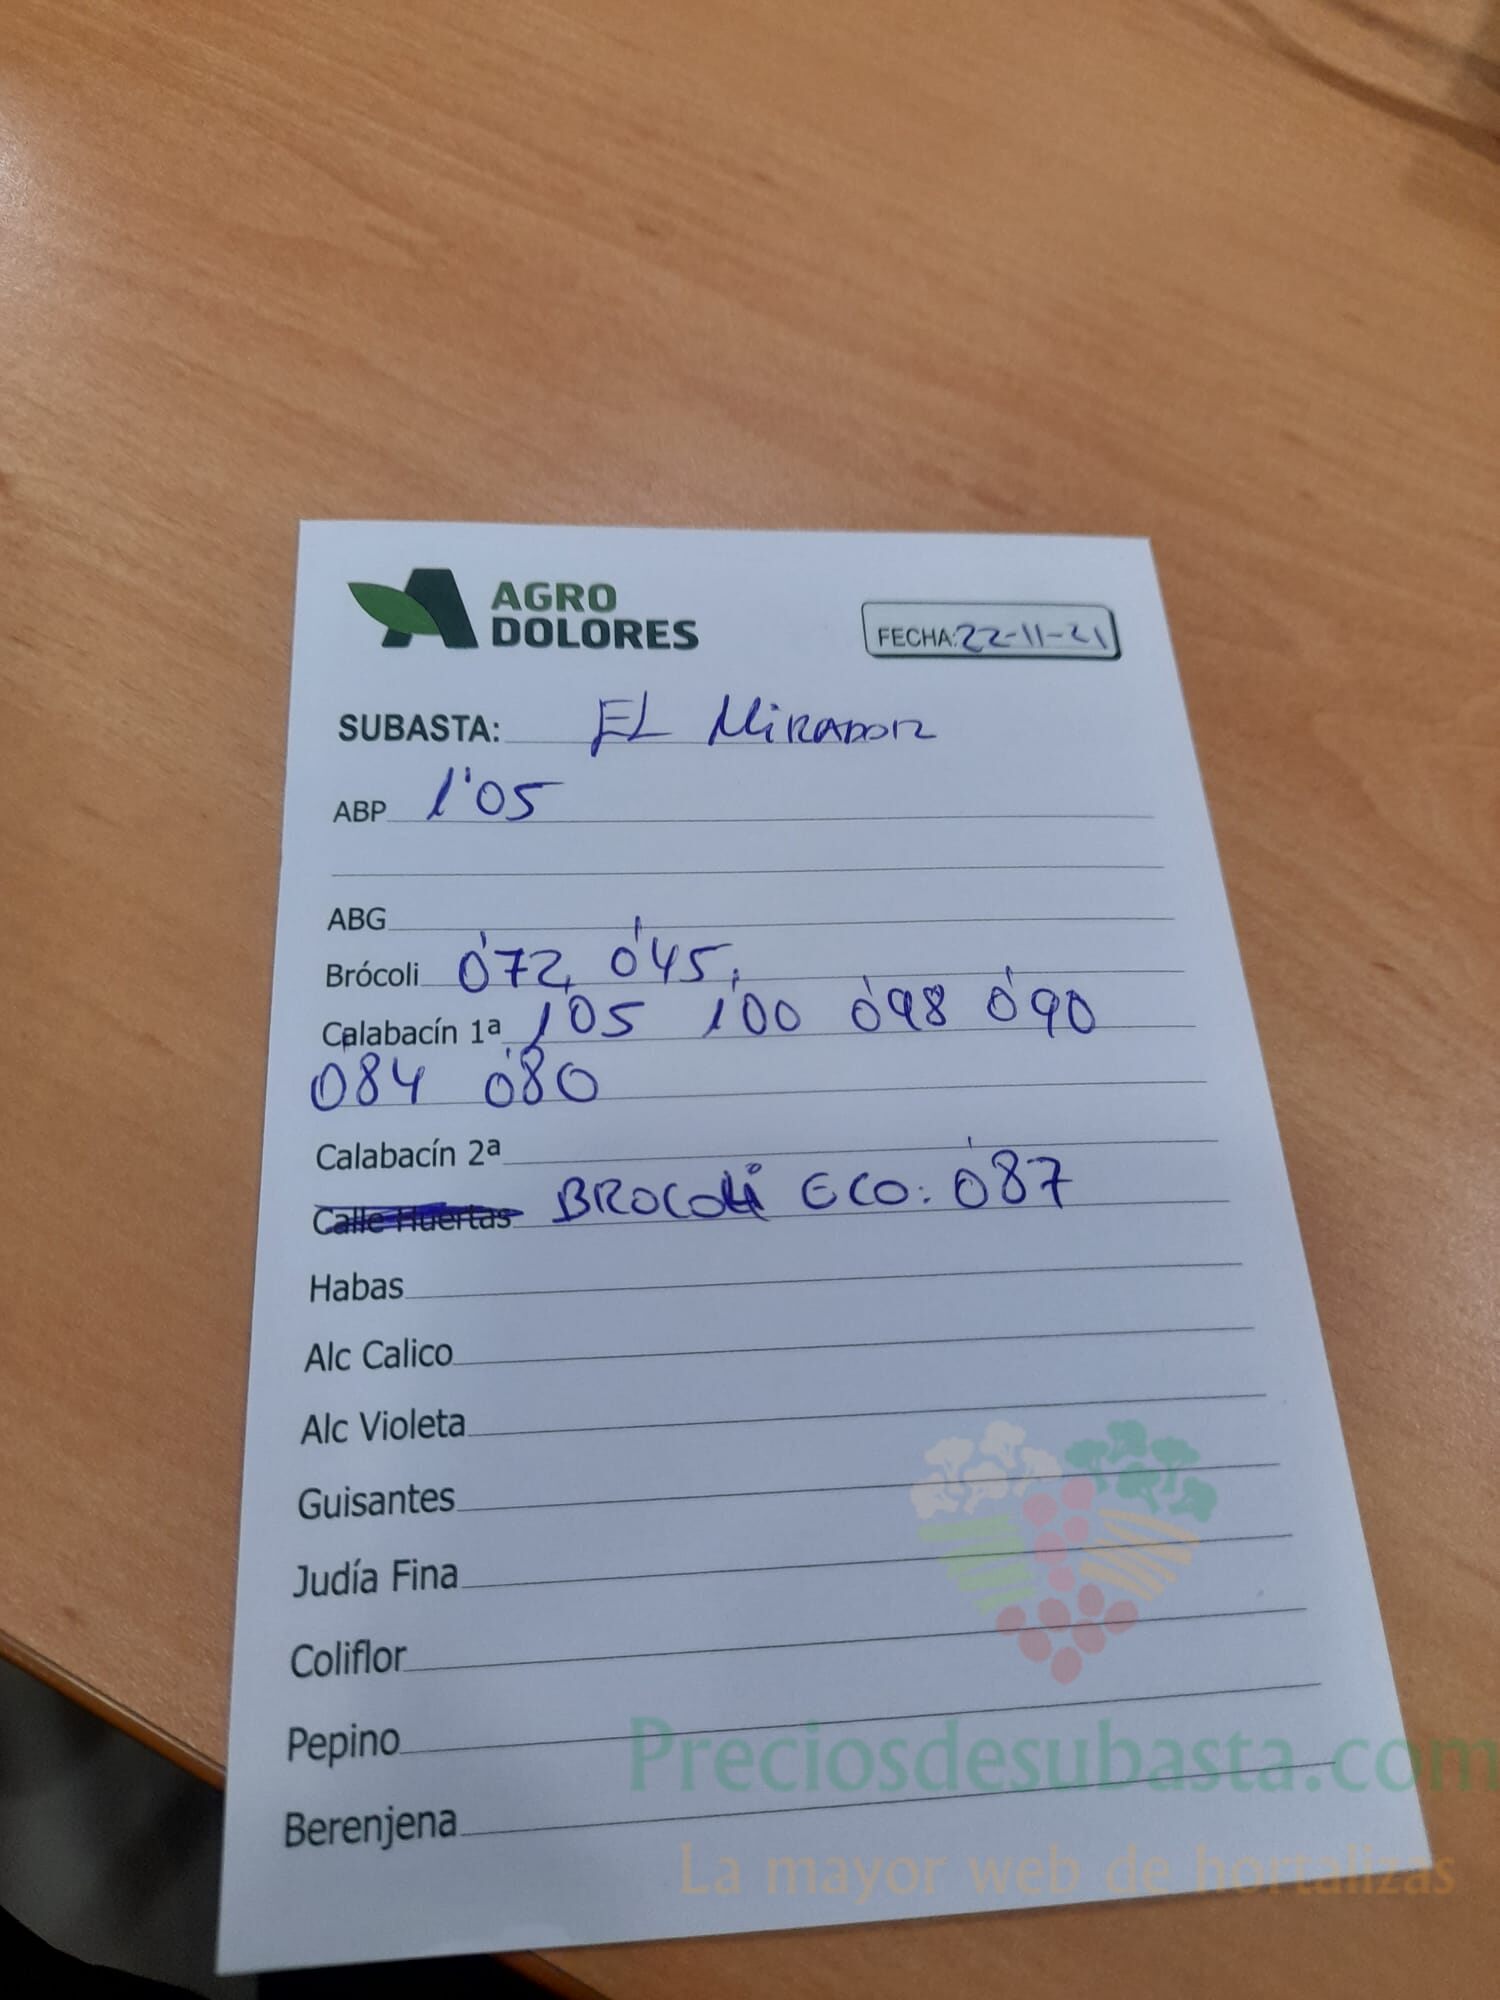 AGRO
DOLORES
FECHA: 22-11-21
SUBASTA: EL MIRADOR
ABP 1'05
ABG
Brócoli 0'72, 0'45,
Calabacín 1ª 1'05 1'00 0'98 0'90
0'84 0'80
Calabacín 2ª
Calle Huertas BROCOLi ECO: 0'87
Habas
Alc Calico
Alc Violeta
Guisantes
Judía Fina
Coliflor
Pepino
Berenjena
Preciosdesubasta.com
La mayor web de hortalizas